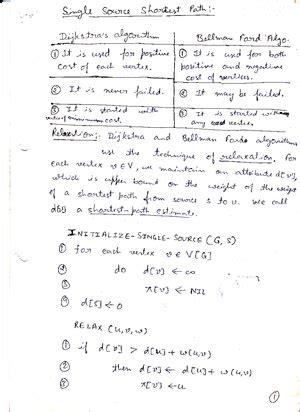 Single Source Shortest Path:-
Dijkstra's algorithm
Bellman Ford Algo.
① It is used for positive
cost of each vertex.
① It is used for both
positive and negative
cost of vertices.
② It is never failed.
② It may be failed.
③ It is started with
cost.
③ It is started with
any vertices.
Relaxation:- Dijkstra and Bellman Fords algorithms
use the technique of relaxation. For
each vertex v ∈ V, we maintain an attribute d[v],
which is upper bound on the weight of the weight
of a shortest path from source s to v. We call
d[v] a shortest-path estimate.
INITIALIZE-SINGLE-SOURCE (G, S)
① for each vertex v ∈ V[G]
② do d[v] ← ∞
③ π[v] ← NIL
④ d[S] ← 0
RELAX (u, v, w)
① if d[v] > d[u] + w(u,v)
② then d[v] ← d[u] + w(u,v)
③ π[v] ← u
①